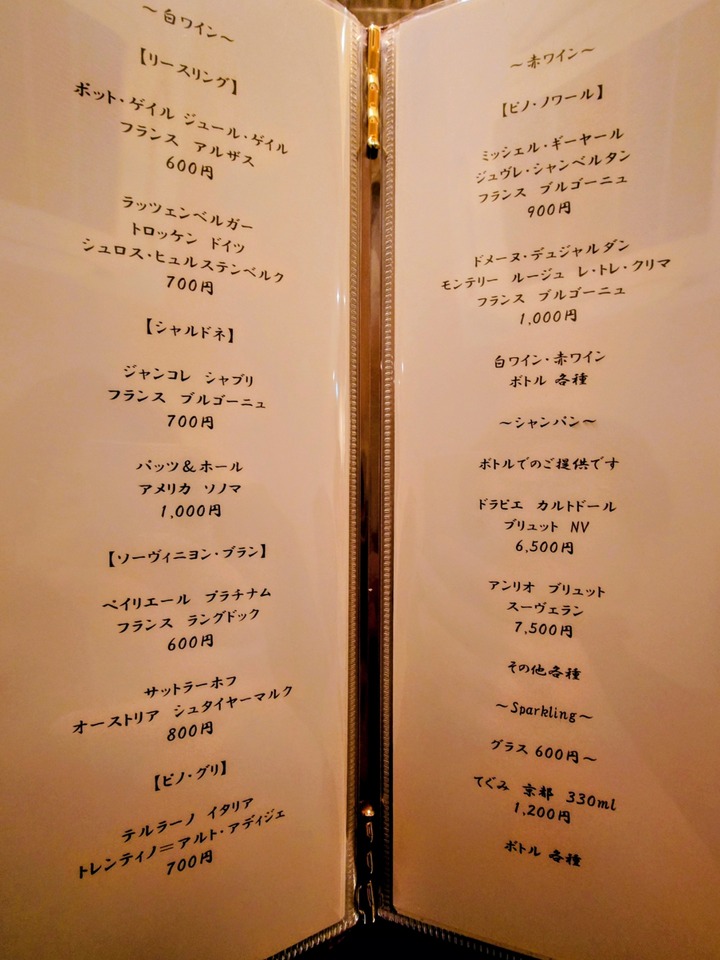 ～白ワイン～
【リースリング】
ボット・ゲイル ジュール・ゲイル
フランス アルザス
600円
ラッツェンベルガー
トロッケン ドイツ
シュロス・ヒュルステンベルク
700円
【シャルドネ】
ジャンコレ シャブリ
フランス ブルゴーニュ
700円
パッツ＆ホール
アメリカ ソノマ
1,000円
【ソーヴィニヨン・ブラン】
ペイリエール プラチナム
フランス ラングドック
600円
サットラーホフ
オーストリア シュタイヤーマルク
800円
【ピノ・グリ】
テルラーノ イタリア
トレンティノ＝アルト・アディジェ
700円
～赤ワイン～
【ピノ・ノワール】
ミッシェル・ギーヤール
ジュヴレ・シャンベルタン
フランス ブルゴーニュ
900円
ドメーヌ・デュジャルダン
モンテリー ルージュ レ・トレ・クリマ
フランス ブルゴーニュ
1,000円
白ワイン・赤ワイン
ボトル 各種
～シャンパン～
ボトルでのご提供です
ドラピエ カルトドール
ブリュット NV
6,500円
アンリオ ブリュット
スーヴェラン
7,500円
その他各種
～Sparkling～
グラス 600円～
てぐみ 京都 330ml
1,200円
ボトル 各種